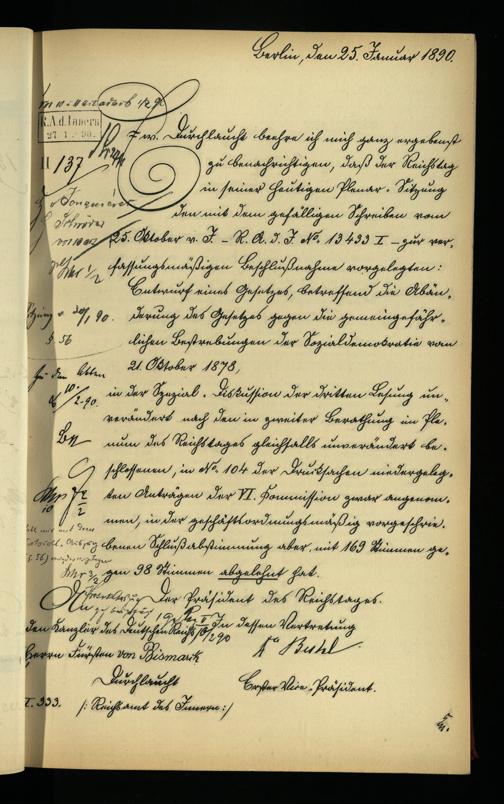 Berlin, den 25. Januar 1890.
R.A.d. Innern
27. 1. 90.
II 137
Ew. Durchlaucht beehre ich mich ganz ergebenst
zu benachrichtigen, daß der Reichstag
in seiner heutigen Plenar-Sitzung
den mit dem gefälligen Schreiben vom
25. Oktober v. J. - R. A. d. J. No. 13433 I - zur ver-
fassungsmäßigen Beschlußnahme vorgelegten:
Entwurf eines Gesetzes, betreffend die Abän-
derung des Gesetzes gegen die gemeingefähr-
lichen Bestrebungen der Sozialdemokratie vom
21. Oktober 1878,
Zu den Akten
in der Spezial-Diskussion der dritten Lesung un-
verändert nach den in zweiter Berathung im Ple-
num des Reichstages gleichfalls unverändert be-
schlossenen, in No. 104 der Drucksachen niedergeleg-
ten Anträgen der VI. Commission zwar angenom-
men, in der geschäftsordnungsmäßig vorgeschrie-
benen Schlußabstimmung aber mit 169 Stimmen ge-
gen 98 Stimmen abgelehnt hat.
Der Präsident des Reichstages.
In dessen Vertretung
An
den Kanzler des Deutschen Reichs
Herrn Fürsten von Bismarck
Durchlaucht
Erster Vice-Präsident.
I. 333.
/: Reichsamt des Innern :/